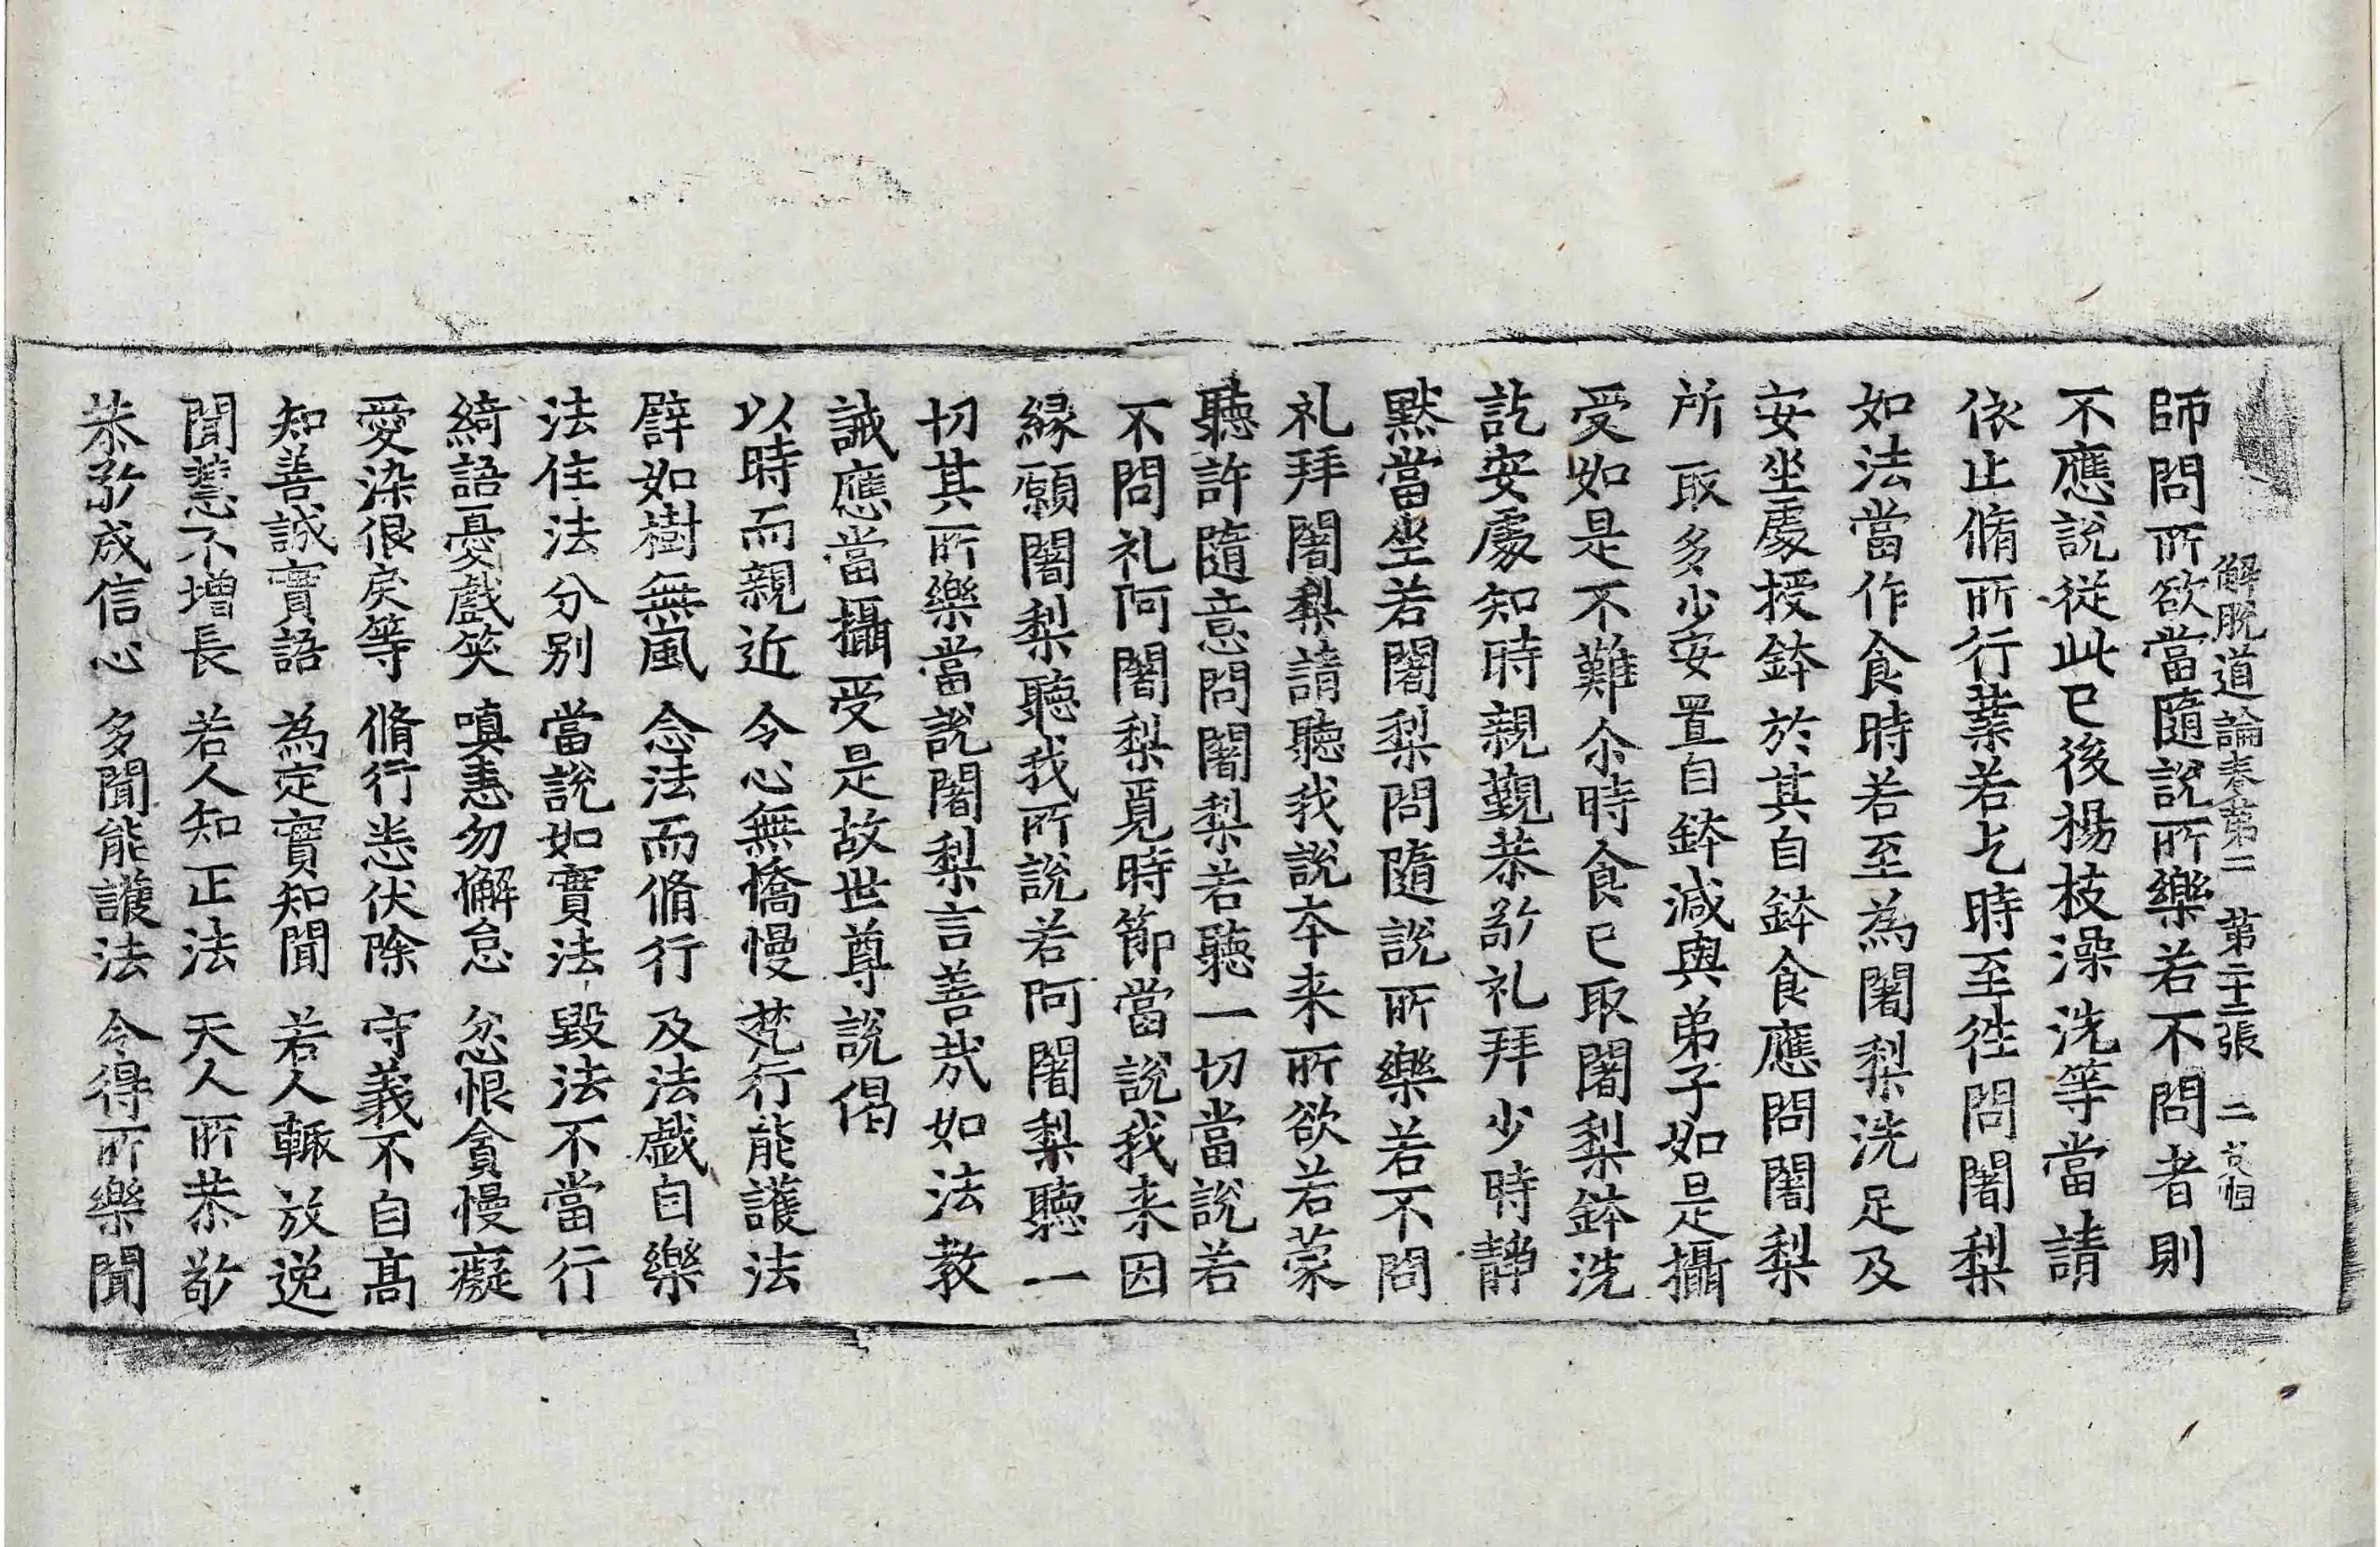 解脫道論卷第二 第二十三張
師問所欲當隨說所樂若不問者則
不應說從此已後楊枝澡洗等當請
依止脩所行業若乞時至徃問闍梨
如法當作食時若至為闍梨洗足及
安坐處授鉢於其自鉢食應問闍梨
所取多少安置自鉢減與弟子如是攝
受如是不難尒時食已取闍梨鉢洗
訖安處知時親覲恭敬礼拜少時靜
默當坐若闍梨問隨說所樂若不問
礼拜闍梨請聽我說本来所欲若蒙
聽許隨意問闍梨若聽一切當說若
不問礼阿闍梨覓時節當說我来因
緣願闍梨聽我所說若阿闍梨聽一
切其所樂當說闍梨言善哉如法教
誡應當攝受是故世尊說偈
以時而親近 令心無憍慢 梵行能護法
譬如樹無風 念法而脩行 及法戲自樂
法住法分別 當說如實法 毀法不當行
綺語憂戲笑 嗔恚勿懈怠 忿恨貪慢癡
愛染很戾等 脩行恙伏除 守義不自髙
知善誠實語 為定實知聞 若人輙放逸
聞慧不增長 若人知正法 天人所恭敬
恭敬成信心 多聞能護法 令得所樂聞